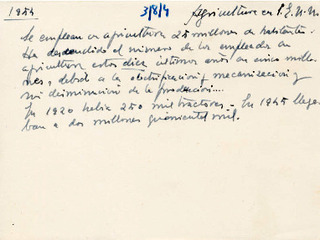 1954 3/8/4 Agricultura en E.E.U.U.
Se emplean en agricultura 25 millones de habitantes.
Ha descendido el número de los empleados en
agricultura estos diez últimos años en cinco millo-
nes, debido a la electrificación y mecanización y
ni disminución de la producción...
En 1920 había 250 mil tractores - En 1945 llega-
ban a dos millones quinientos mil.